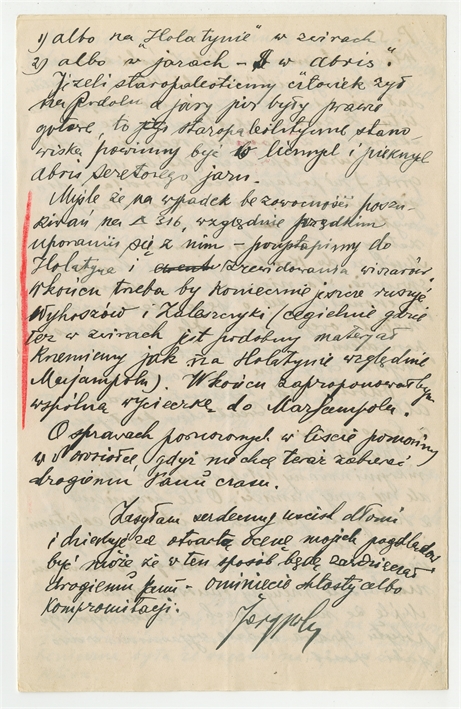 1) albo na "Hołatynie" w zwirach
2) albo w "jarach - w abris".
Jeżeli staropaleotiemy człowiek żył
na Podolu a jary już były prawie
gotowe, to jego staropaleolityczne stano-
wiska powinny być w licznych i pięknych
abris seretowego jaru.
Myślę że na wypadek bezowocności poszu-
kiwań na A 316, względnie prędkim
uporaniu się z nim - powinny do
Hołatyna i zrewidowania
W końcu trzeba by koniecznie jeszcze ruszyć
Wyhoszów i Zaleszczyki / cegielnie gdzie
też w zwirach jest podobny materjał
Krzemienny jak na Hołatynie względnie
Marjampolu). W końcu zaproponowałbym
wspólną wycieczkę do Marjampolu.
O sprawach poruszonych w liście pomówimy
w gdyż nie chcę teraz zabierać
drogiemu Panu czasu.
Zasyłam serdeczny uścisk dłoni
i dziękuję za otwartą ocenę mojch poglądów
być może że w ten sposób będę zawdzięczał
drogiemu Panu - ominięcie albo
kompromitacji.